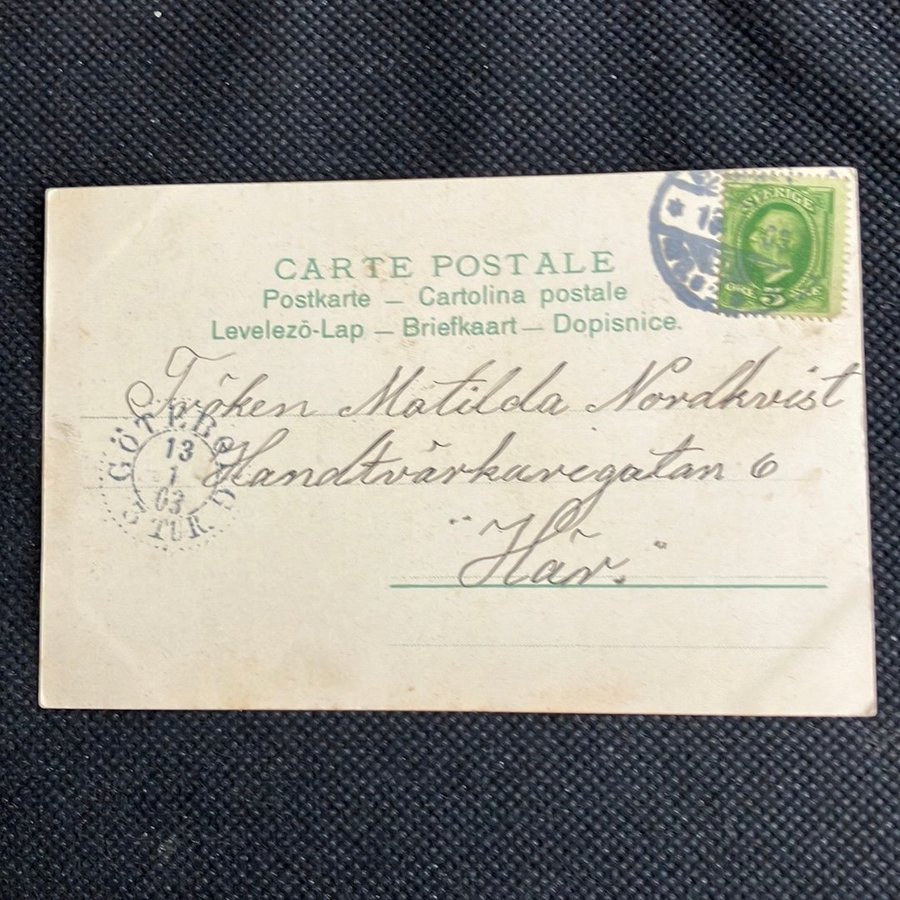 SVERIGE
5
CARTE POSTALE
Postkarte — Cartolina postale
Levelezõ-Lap — Briefkaart — Dopisnice.
Fröken Matilda Nordkvist
Handtvärkaregatan 6
"Här."
GÖTEBORG
13
1
03
TUR.